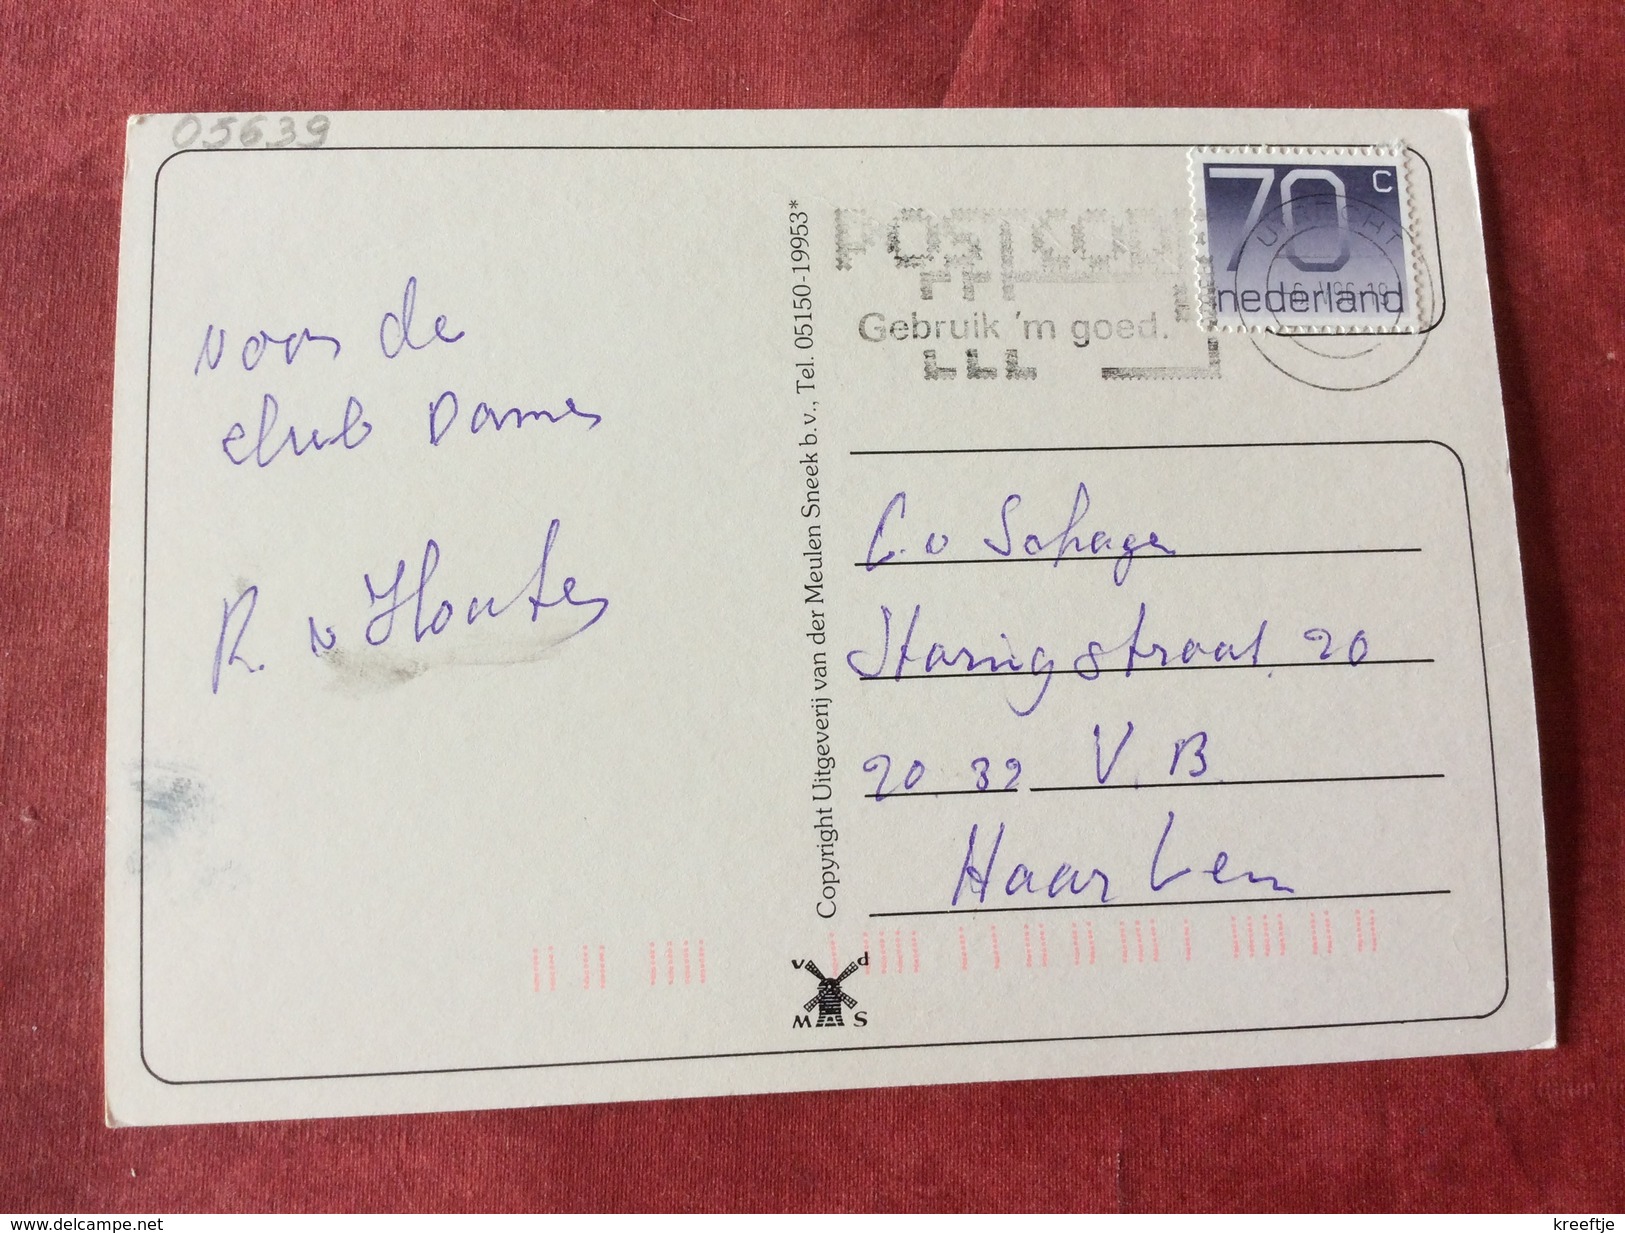 05639
voor de
club Dames
R. v Houten
Copyright Uitgeverij van der Meulen Sneek b.v., Tel. 05150-19953*
POSTKODE
Gebruik 'm goed.
70 c
nederland
UTRECHT
C. v Schagen
Staringstraat 20
2032 VB
Haarlem
V D P
M S
delcampe.net
kreeftje